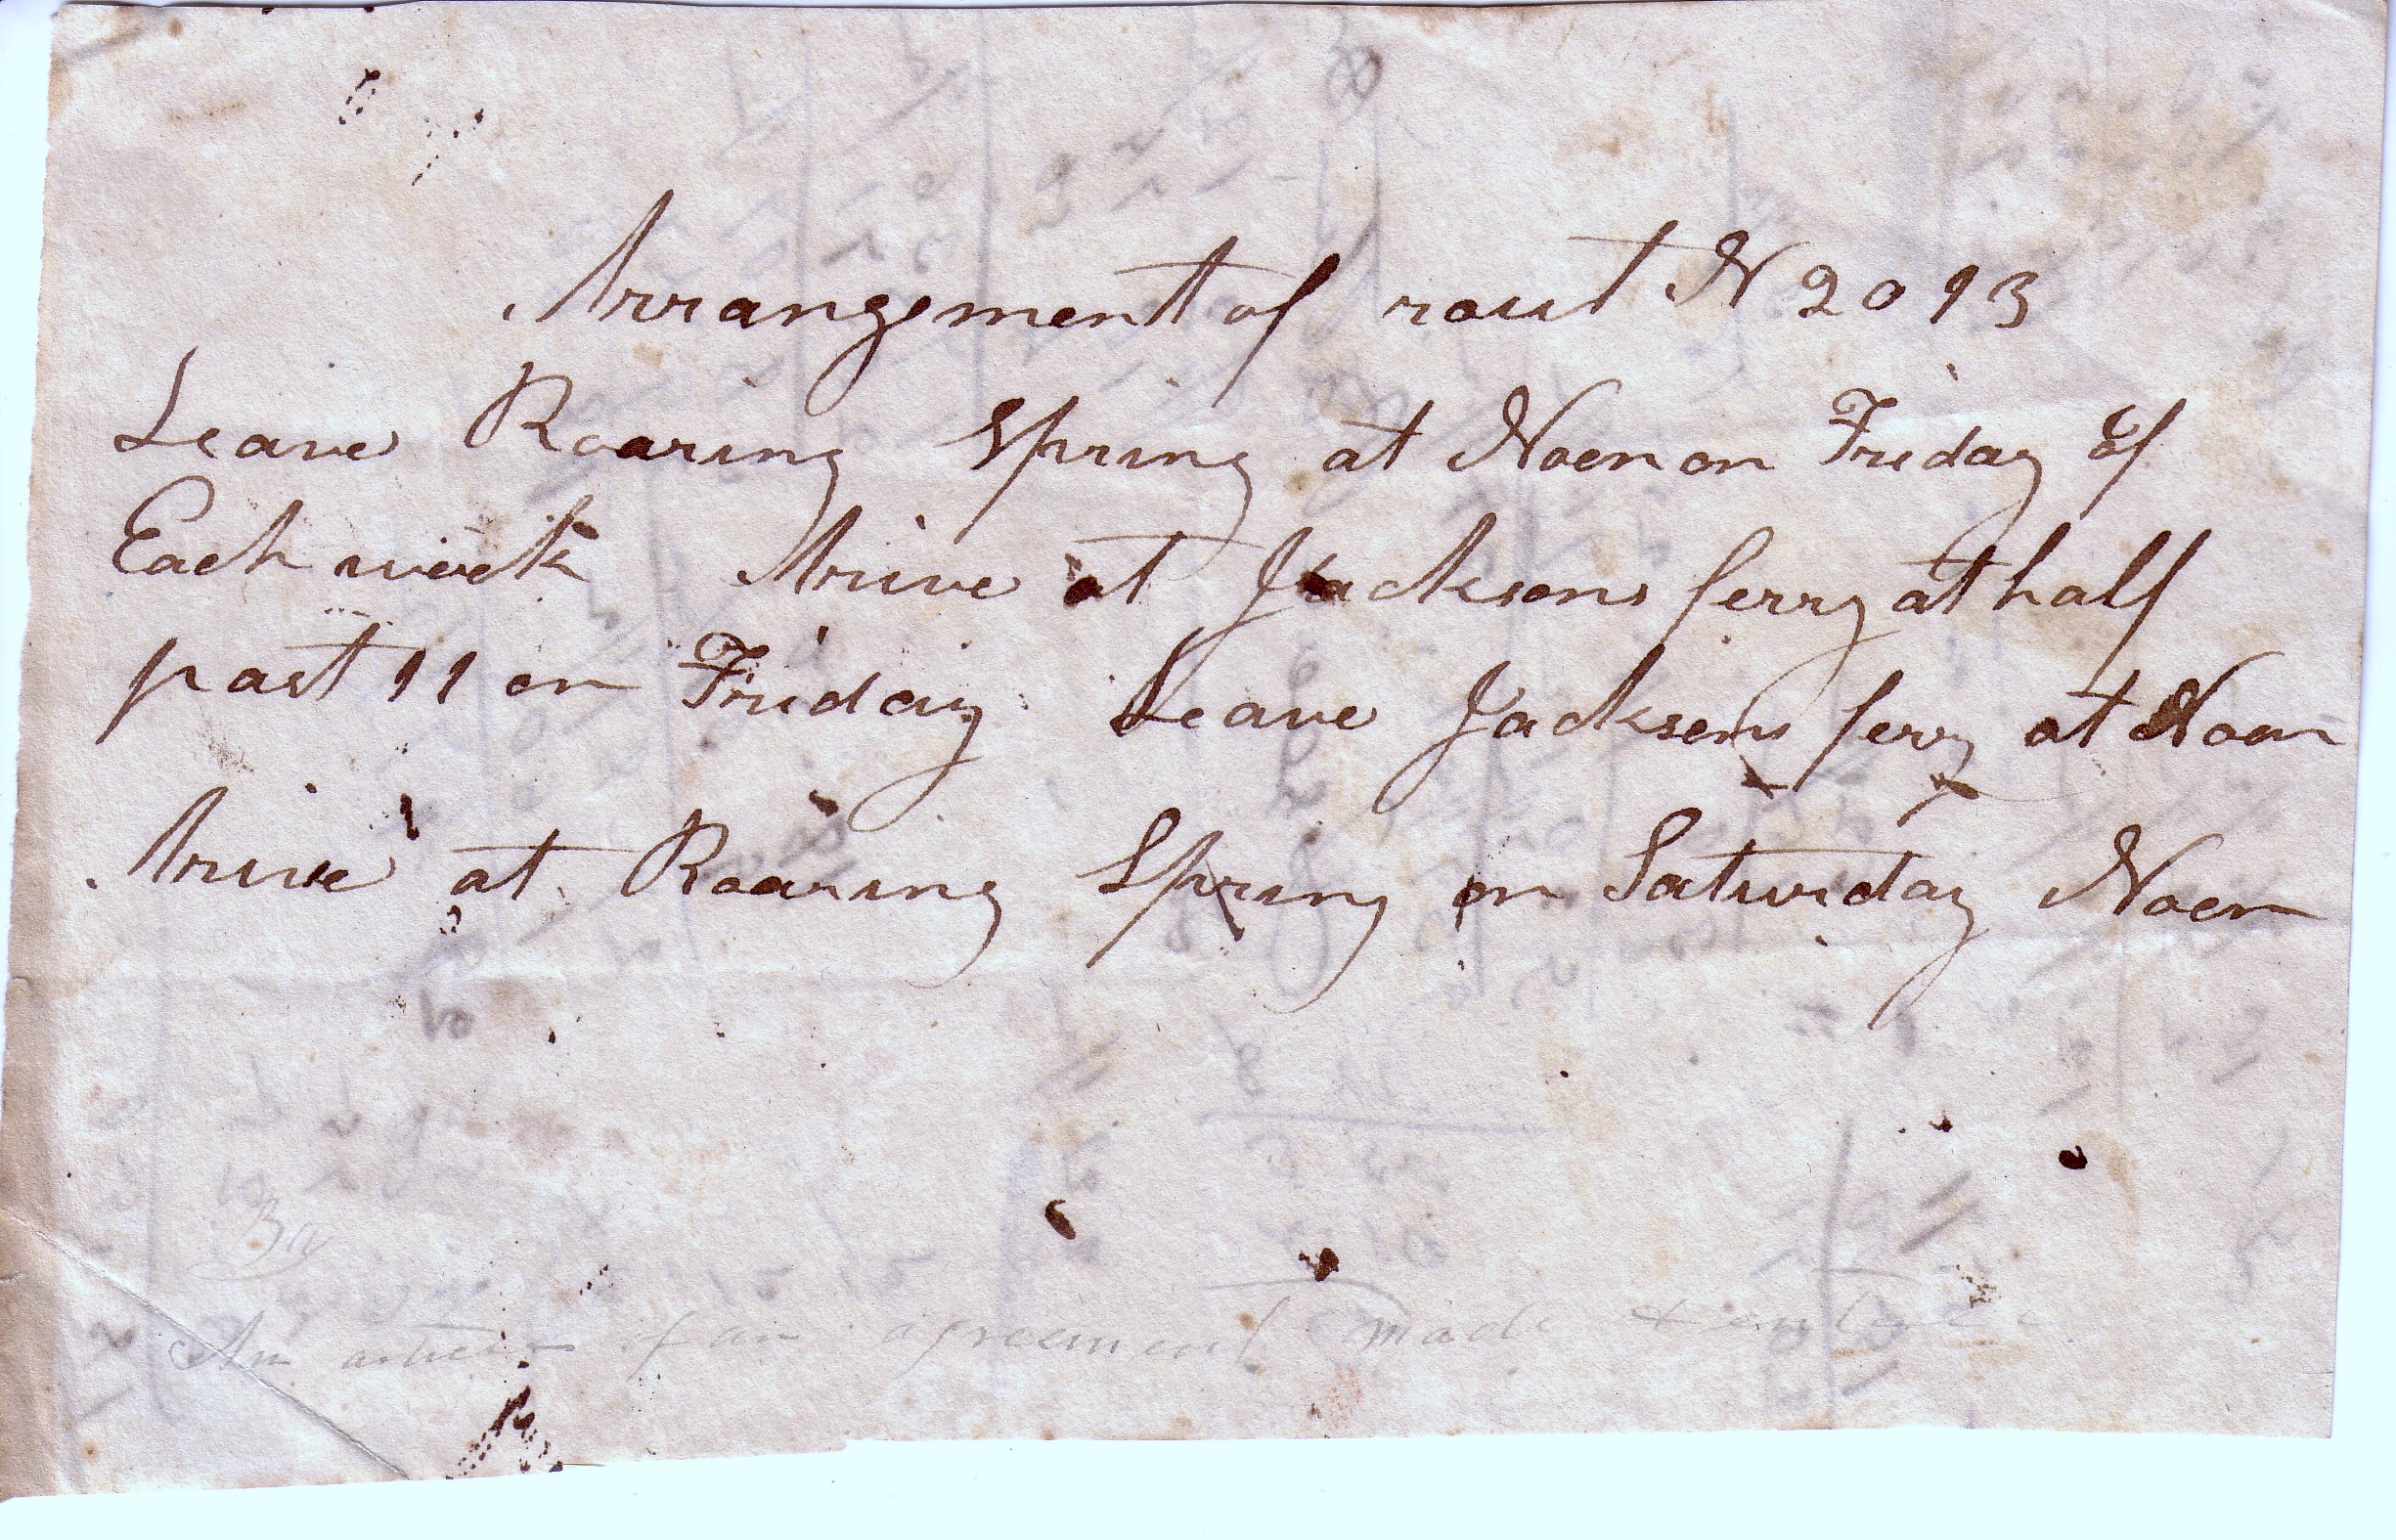 Arrangement of rout N 2013
Leave Roaring Spring at Noon on Friday of
Each week Arive at Jacksons ferry at half
past 11 on Friday Leave Jacksons fery at Noon
Arive at Roaring Spring on Saturday Noon
An of an agreement made &